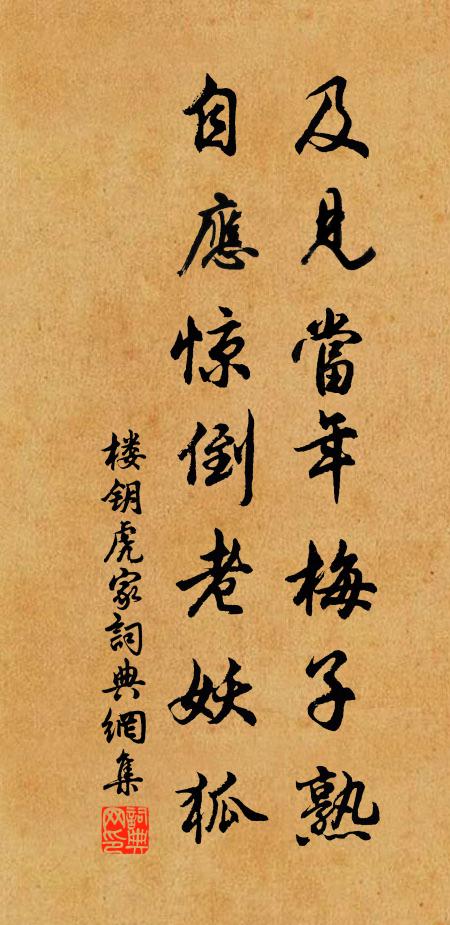 及見當年梅子熟
自應惊倒老妖狐
楼钥虎家詞典網集
詞典網印